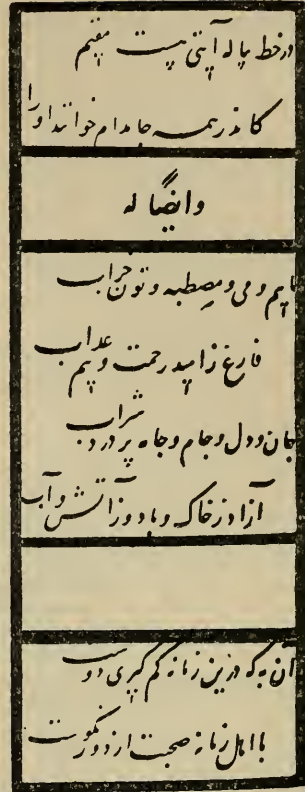 در خط پیاله آیتی هست مقیم
کاندر همه جا مدام خوانند او را
وایضا له
ماییم و می و مصطبه و تون خراب
فارغ ز امید رحمت و بیم عذاب
جان و دل و جام و جامه پر درد شراب
آزاد ز خاک و باد و ز آتش و آب
آن به که درین زمانه کم گیری دوست
با اهل زمانه صحبت از دور نکوست